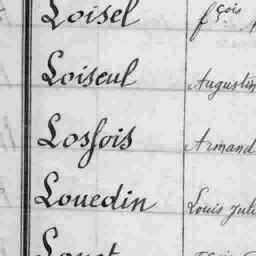 Loisel fçois
Loiseul Augustin
Losfois Armand
Louedin Louis Jul